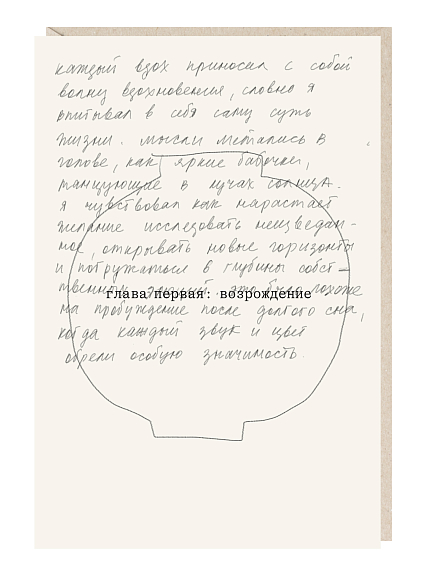 каждый вдох приносил с собой
волну вдохновения, словно я
впитывал в себя саму суть
жизни. мысли метались в
голове, как яркие бабочки,
танцующие в лучах солнца.
я чувствовал как нарастает
желание исследовать неизведан-
ное, открывать новые горизонты
и погружаться в глубины собст-
глава первая: возрождение
твенной это было похоже
на пробуждение после долгого сна,
когда каждый звук и цвет
обрели особую значимость.